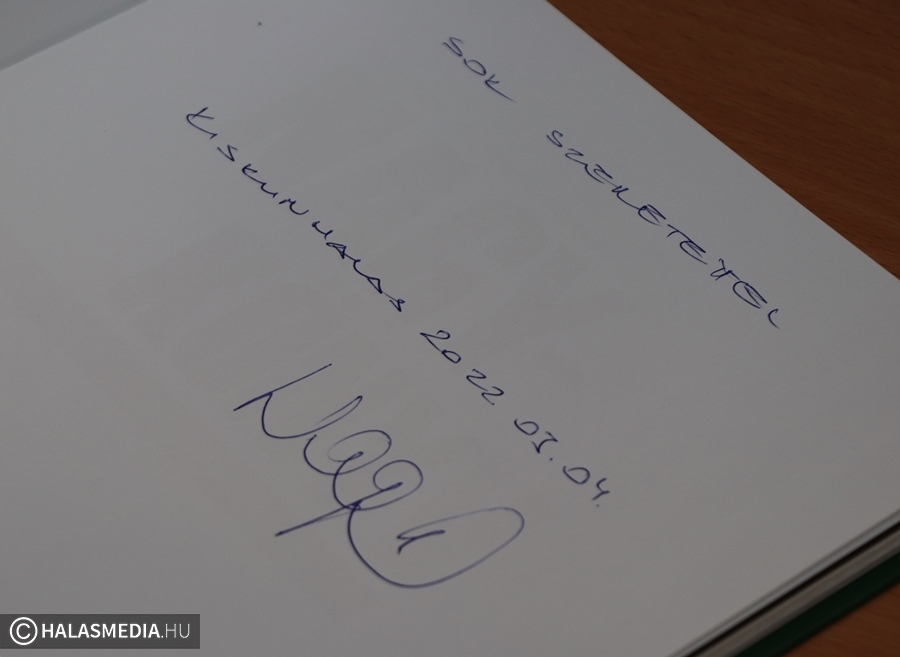 SOK SZERETETTEL
KISKUNHALAS 2022. 03. 04.
© HALASMEDIA.HU